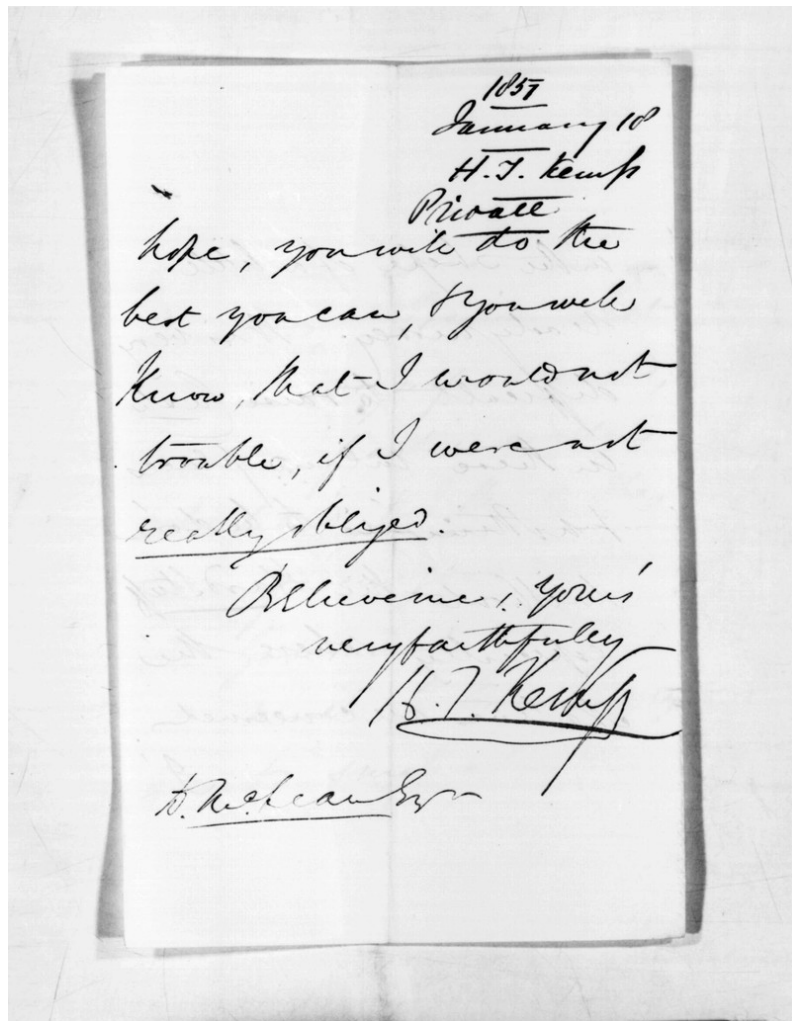 1857
January 18
H. T. Kemp
Private
hope, you will do the
best you can, & you well
Know, that I would not
trouble, if I were not
really obliged.
Believe me, your's
very faithfully
H. T. Kemp
D. McLean Esq